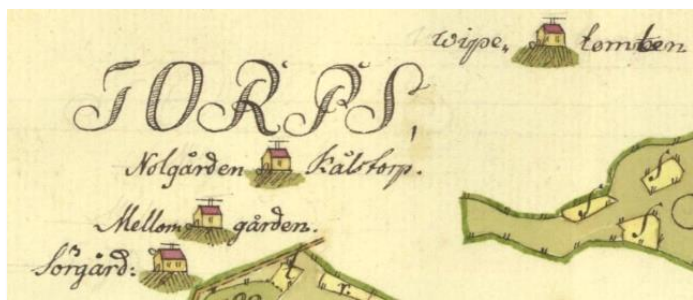 Wipe, tomten
TORPS,
Nolgården Kålstorp.
Mellom gården.
Sörgård: